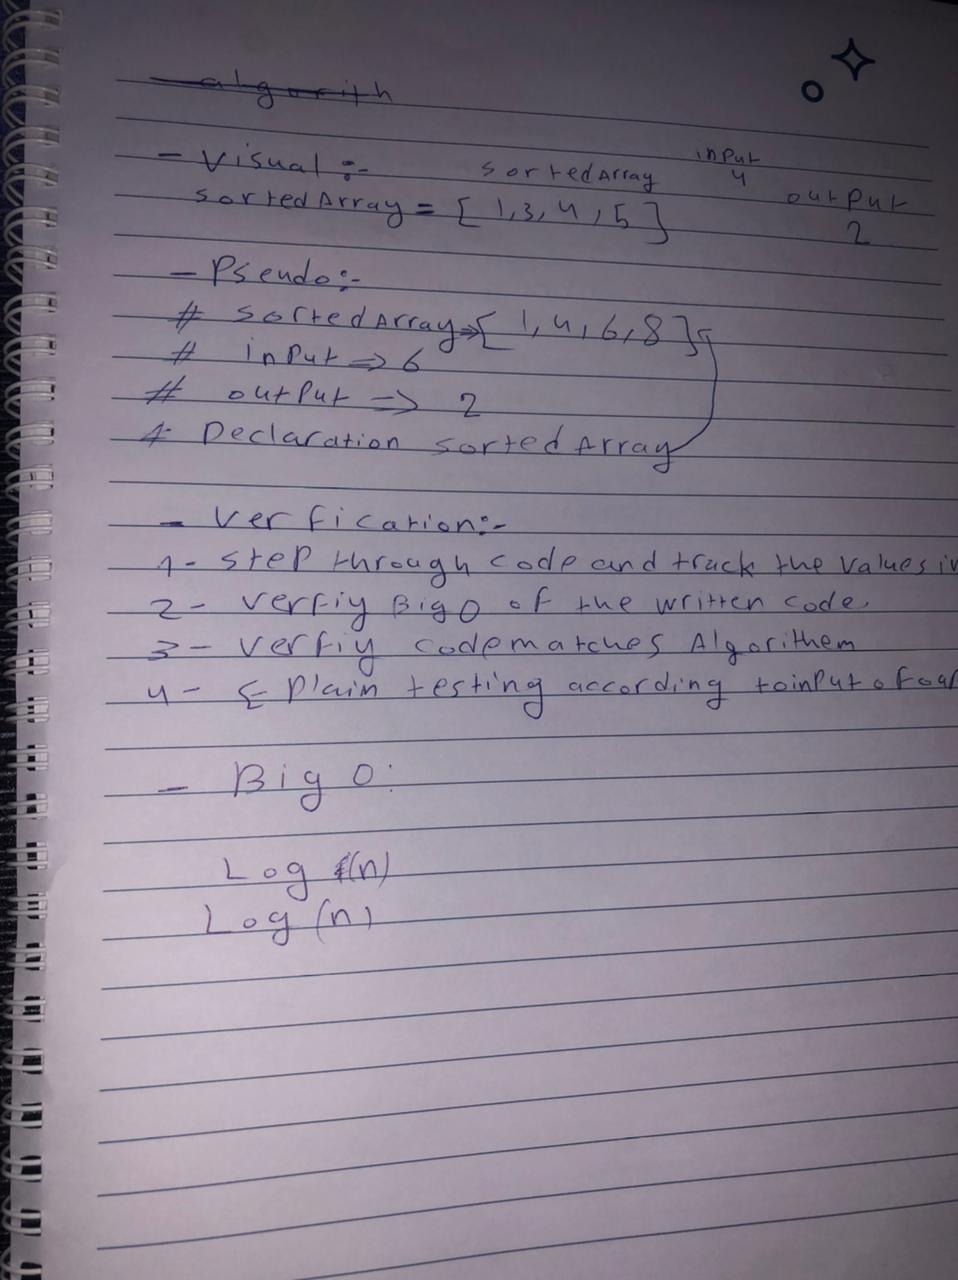 algorith
- Visual :- sortedArray input
4
sortedArray = [ 1,3,4,5 ] output
2
- Pseudo:-
# sortedArray=>[ 1,4,6,8 ]
# input => 6
# output => 2
Declaration sortedArray
- Verfication:-
1- step through code and track the values in
2- verfiy Big O of the written code
3- verfiy code matches Algorithem
4- Eplain testing according to input
- Big O:
Log (n)
Log (n)